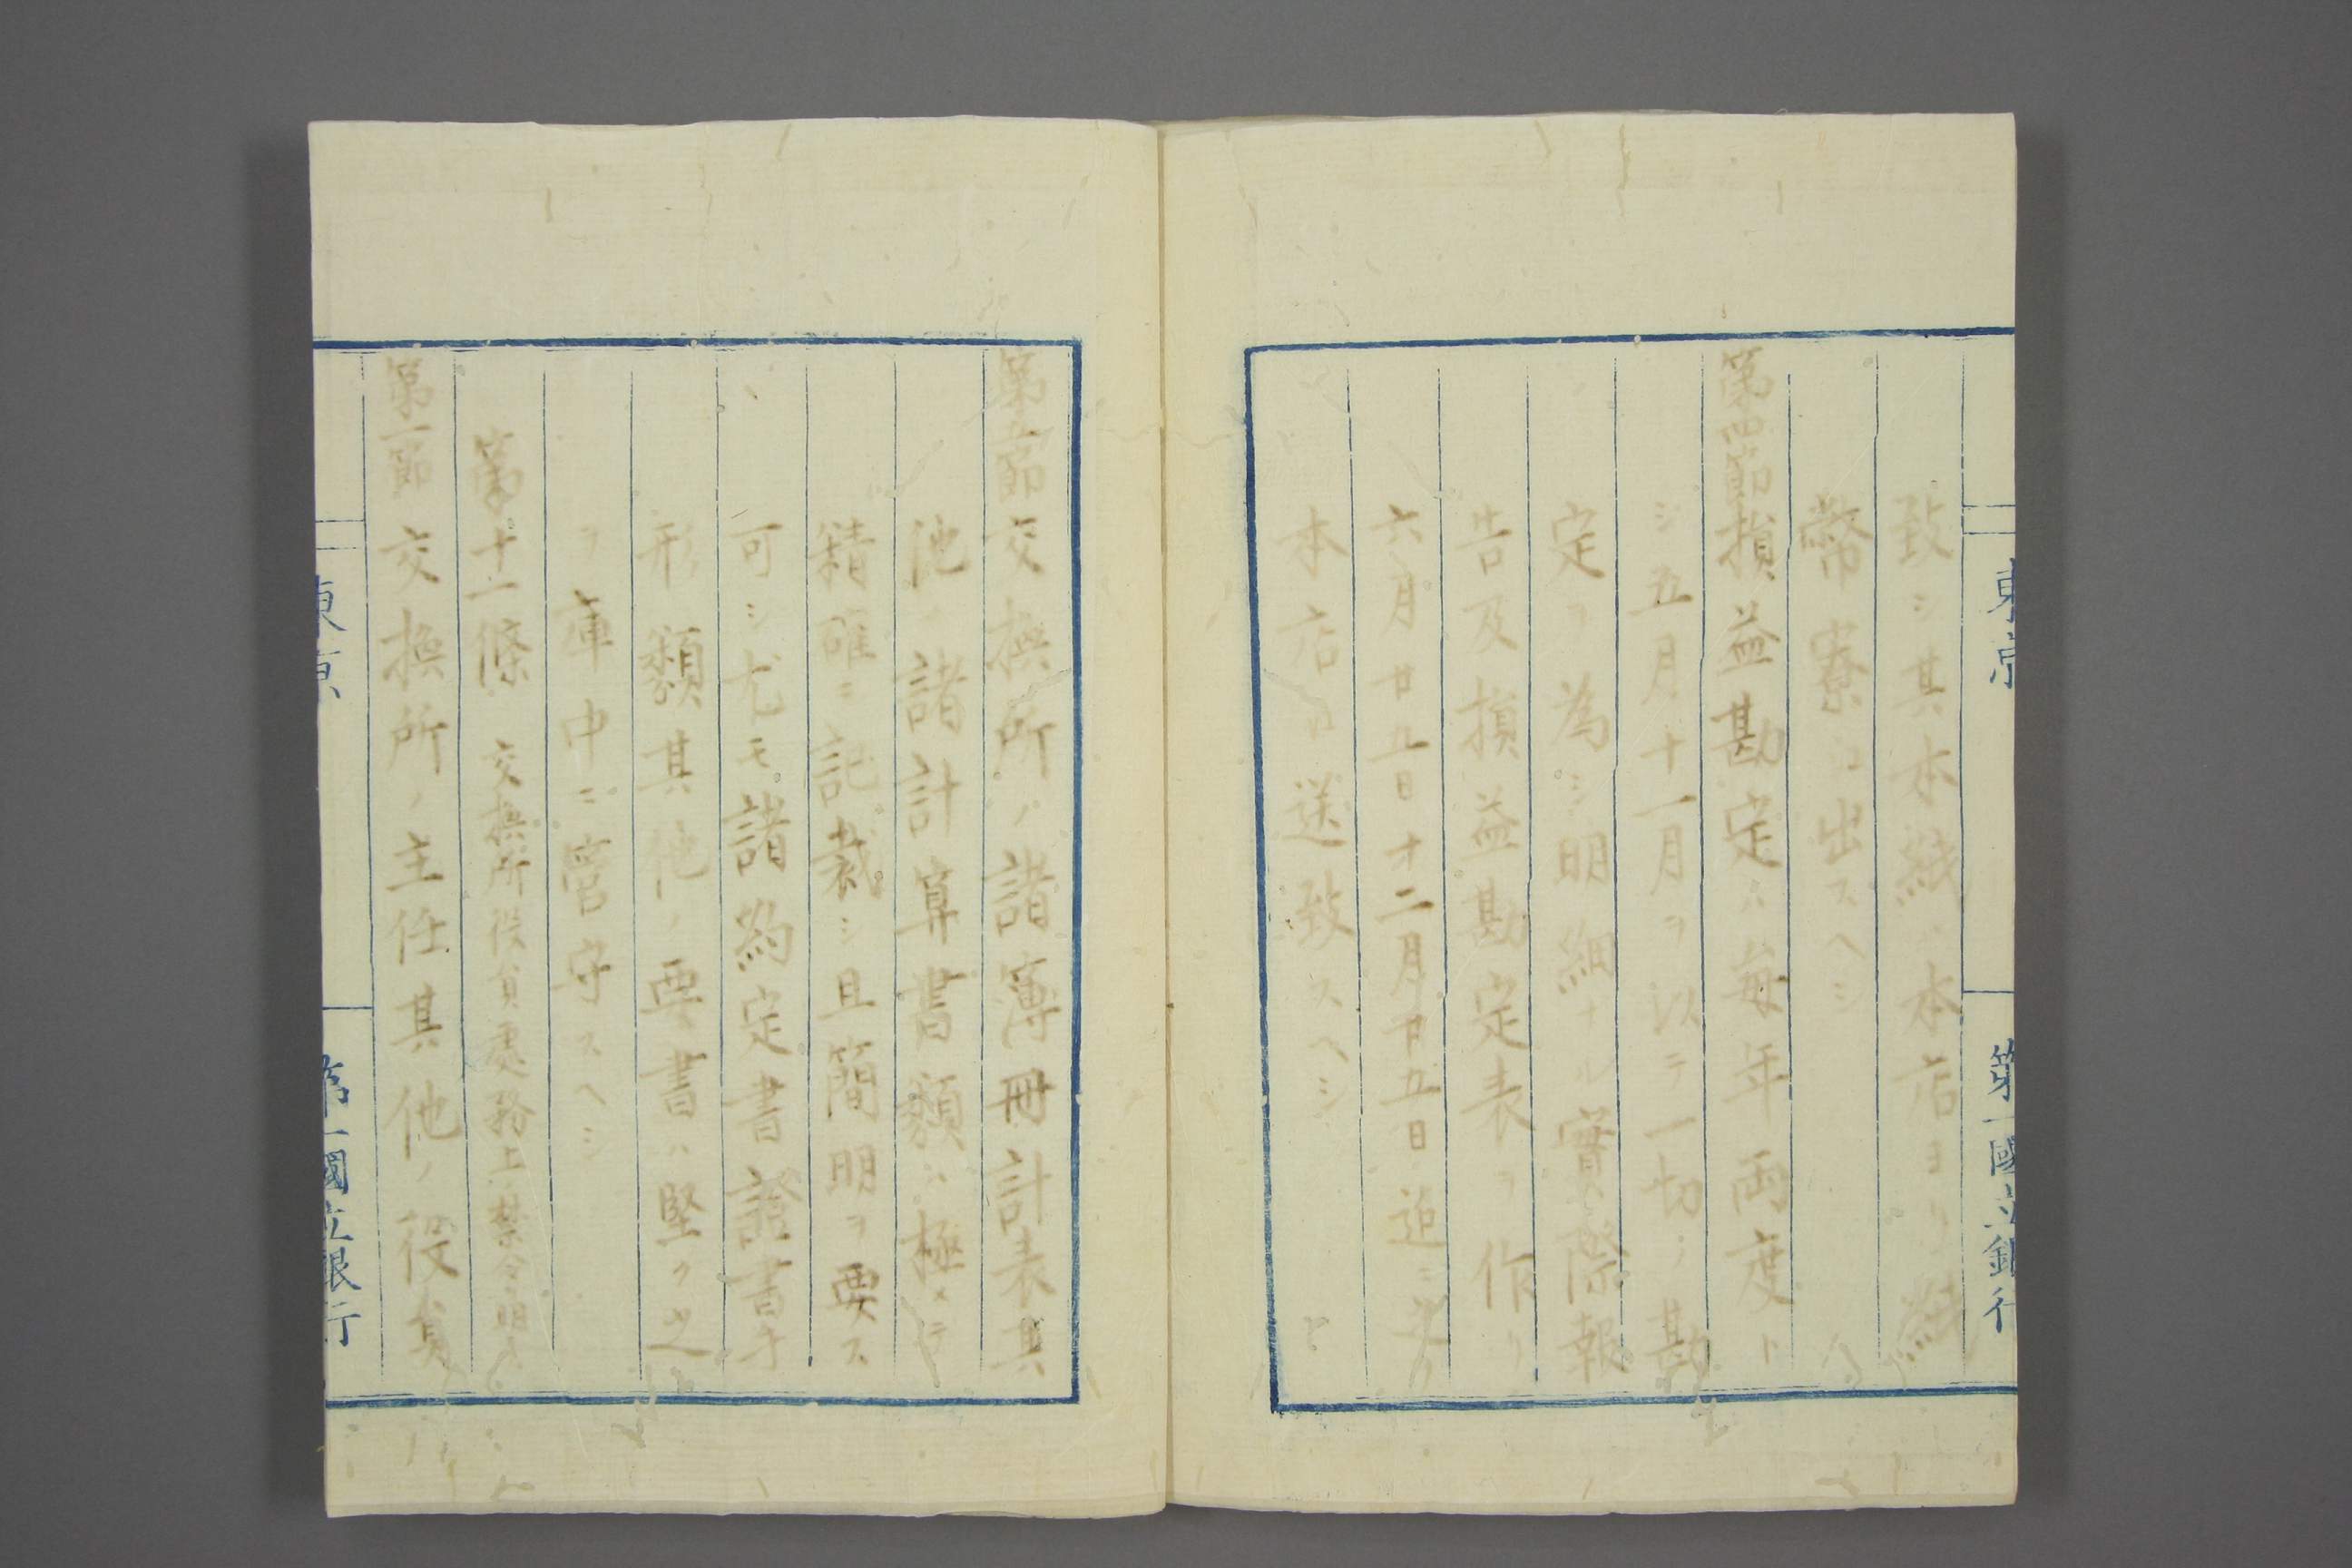 致シ其本紙ハ本店ヨリ紙
幣寮ニ出スヘシ
第四節損益勘定ハ毎年両度ト
シ五月十一月ヲ以テ一切ノ勘
定ヲ為シ明細ナル實際報
告及損益勘定表ヲ作リ
六月廿五日十二月廿五日迠ニ
本店ニ送致スヘシ
第五節交換所ノ諸簿冊計表其
他ノ諸計算書類ハ極メテ
精確ニ記裁シ且簡明ヲ要ス
可シ尤モ諸約定書證書手
形類其他ノ要書ハ堅ク之
ヲ庫中ニ官守スヘシ
第十一條 交換所役員處務上禁令
第一節交換所ノ主任其他ノ役員
東京 第一國立銀行
東京 第一國立銀行